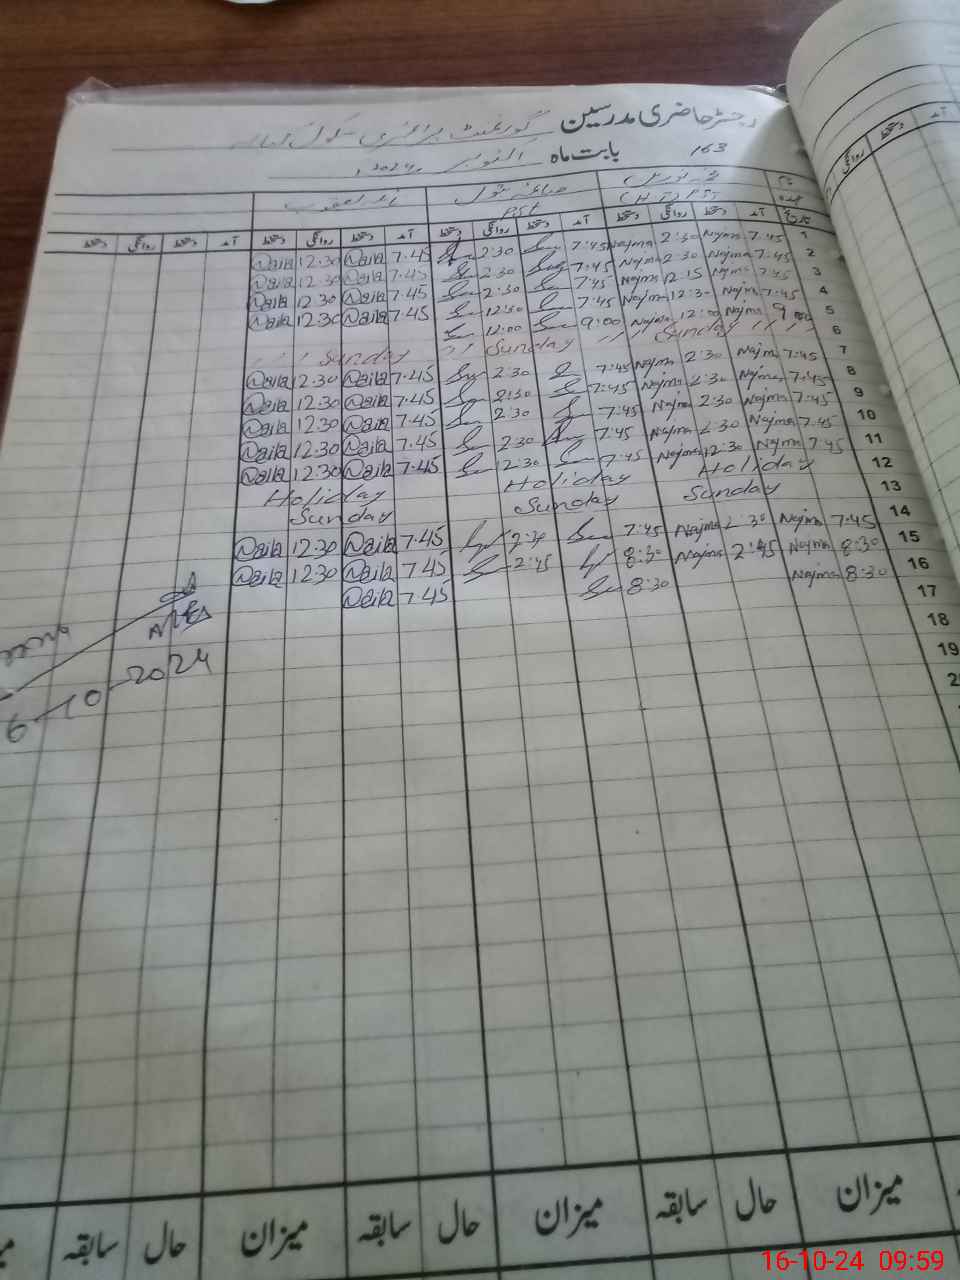 رجسٹر حاضری مدرسین گورنمنٹ پرائمری سکول
163 بابت ماہ اکتوبر 2024ء
نام
عہدہ PST
PST
تاریخ آمد دستخط روانگی دستخط آمد دستخط روانگی دستخط آمد دستخط روانگی دستخط آمد دستخط روانگی دستخط
1 7:45 Najma 2:30 Najma 7:45 2:30 7.45 Naila 12.30 Naila
2 7:45 Najma 2:30 Najma 7:45 2:30 7.45 Naila 12.30 Naila
3 7:45 Najma 12:15 Najma 7:45 2:30 7.45 Naila 12.30 Naila
4 7:45 Najma 12:30 Najma 7:45 12:30 7.45 Naila 12.30 Naila
5 9 Najma 12:00 Najma 9:00 12:00
6 Sunday Sunday Sunday
7 7:45 Najma 2:30 Najma 7:45 2:30 7.45 Naila 12.30 Naila
8 7:45 Najma 2:30 Najma 7:45 2:30 7.45 Naila 12.30 Naila
9 7:45 Najma 2:30 Najma 7:45 2:30 7.45 Naila 12.30 Naila
10 7:45 Najma 2:30 Najma 7:45 2:30 7.45 Naila 12.30 Naila
11 7:45 Najma 12:30 Najma 7:45 12:30 7.45 Naila 12.30 Naila
12 Holiday Holiday Holiday
13 Sunday Sunday Sunday
14 7:45 Najma 2:30 Najma 7:45 2:30 7.45 Naila 12.30 Naila
15 8:30 Najma 2:45 Najma 8:30 2:45 7.45 Naila 12.30 Naila
16 8:30 Najma 8:30 7.45 Naila
17
18
19
6-10-2024
میزان حال سابقہ میزان حال سابقہ میزان حال سابقہ
16-10-24 09:59